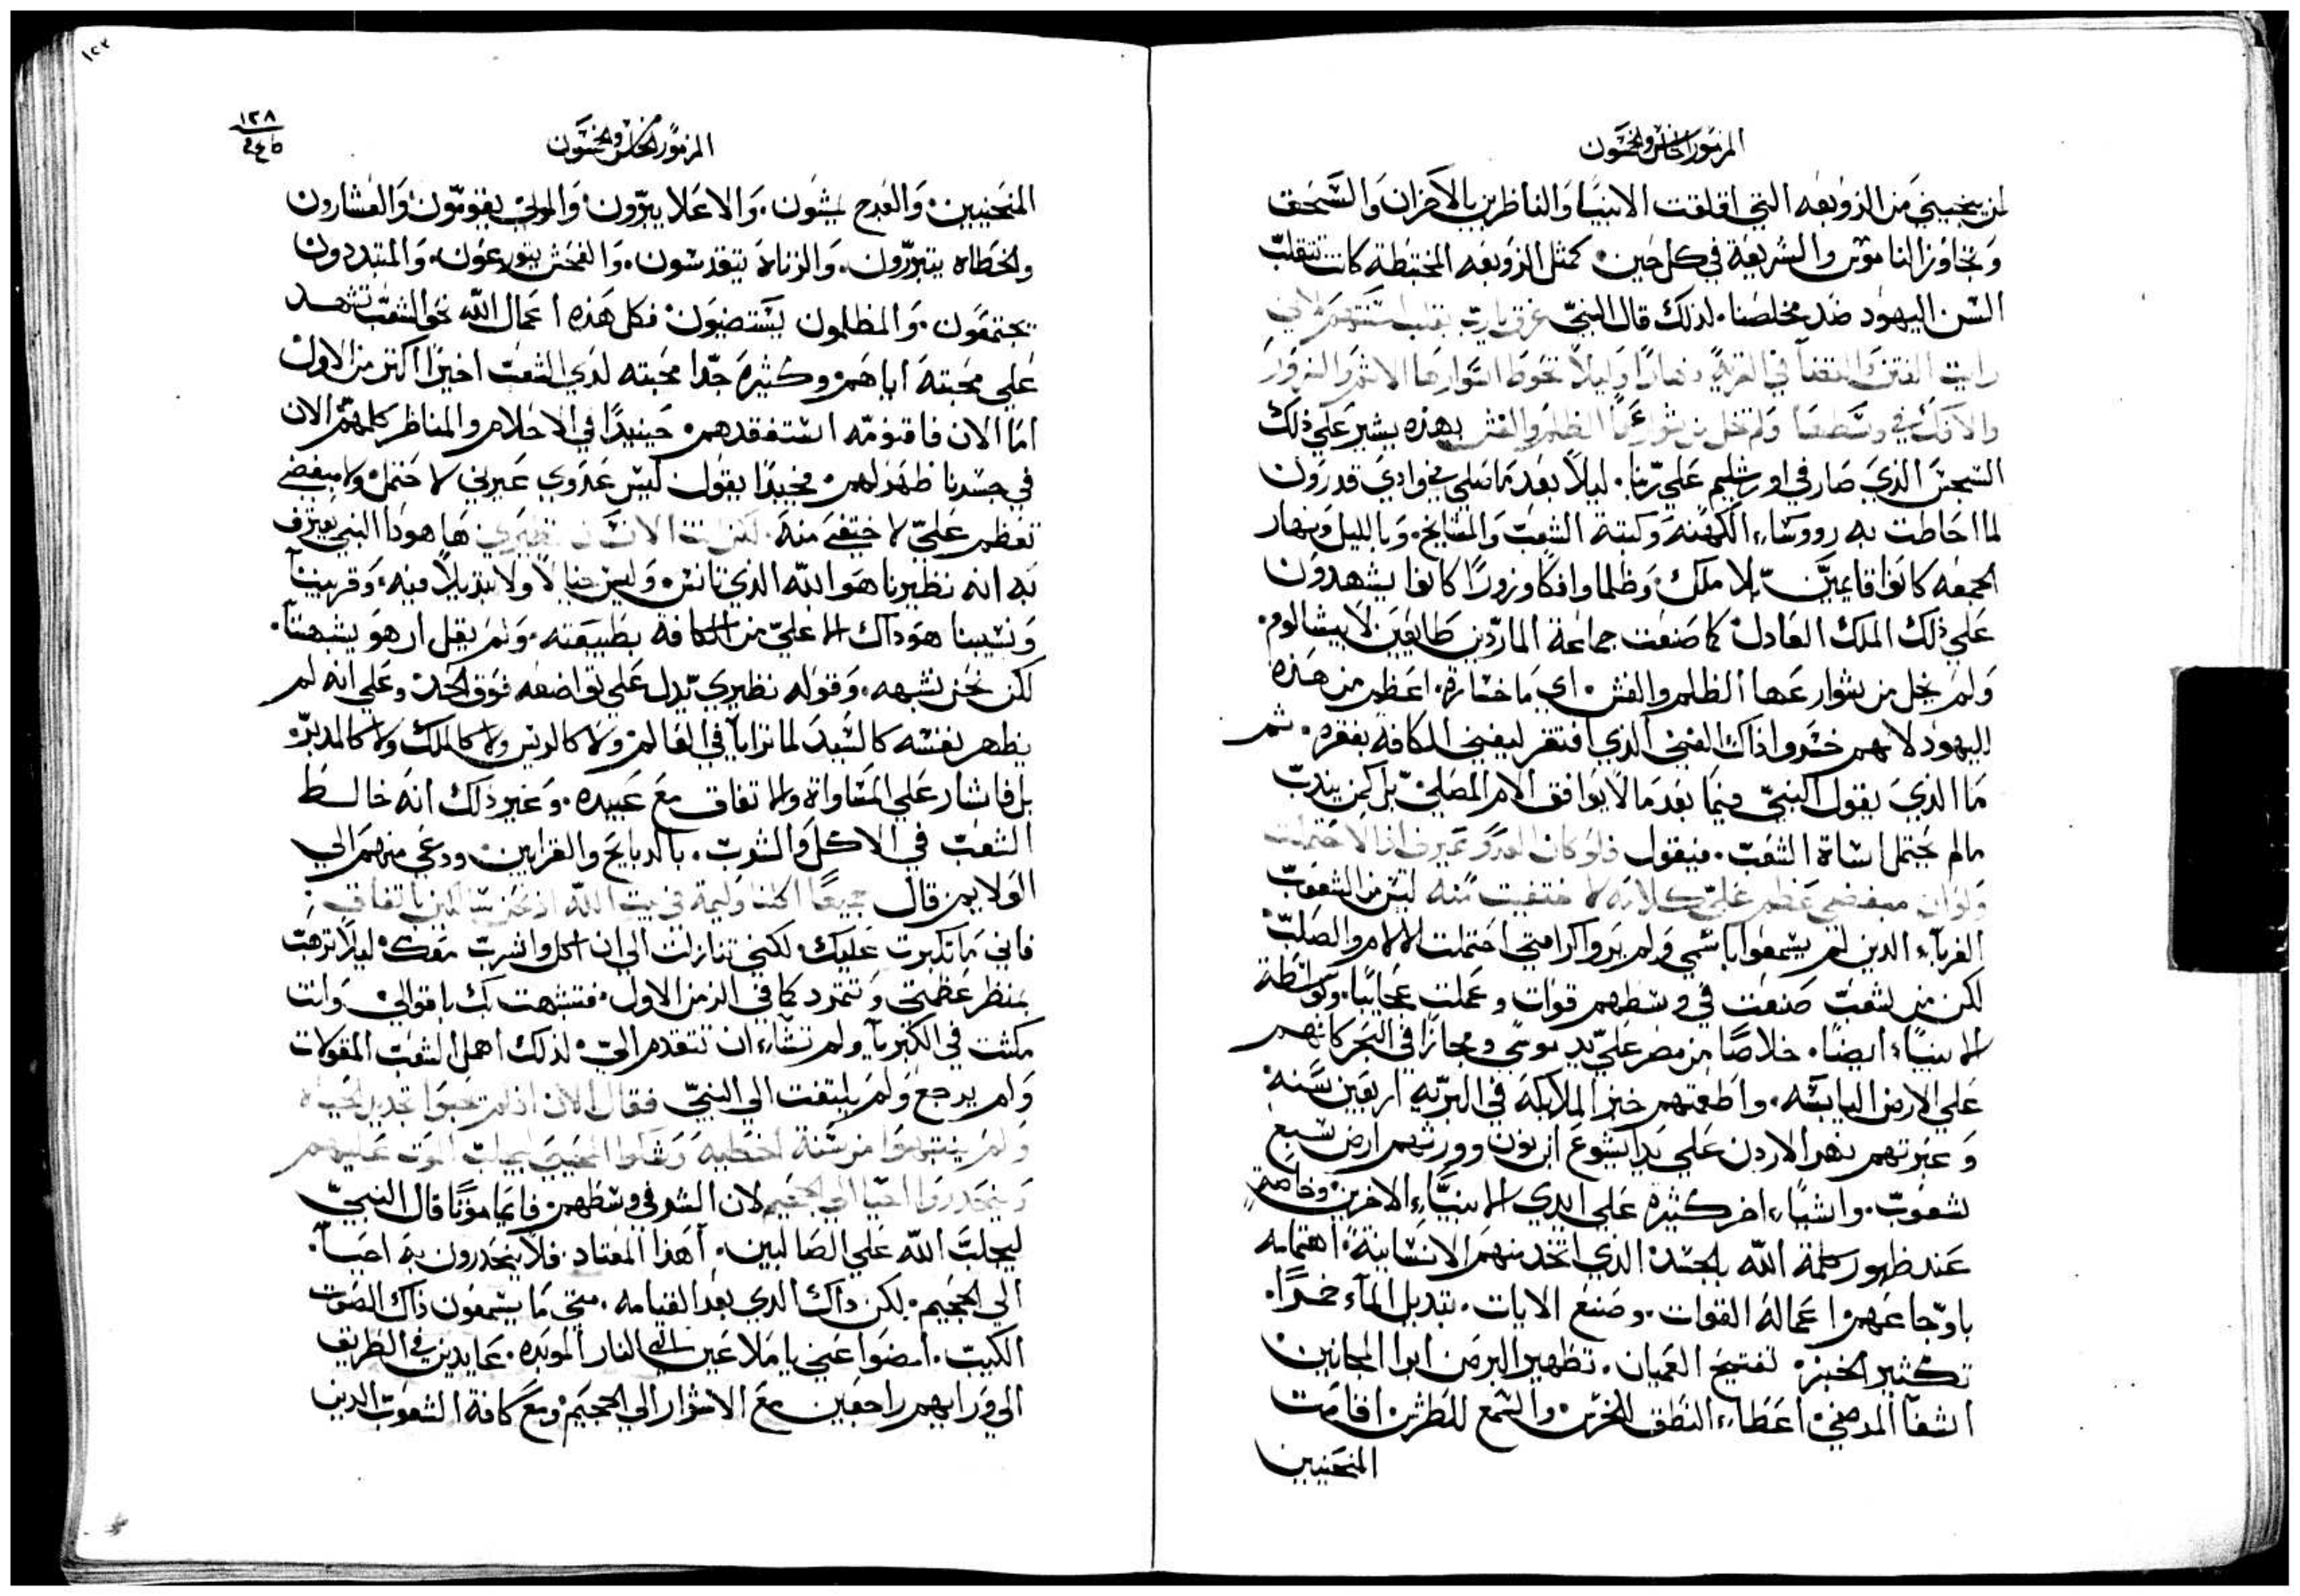 المزمور الخامس والخمسون
لمن ينجيني من الزوبعه التي اقلقت الانبيا والناظرين بالاحزان والسحق
وتجاوز الناموس والشريعة في كل حين. كمثل الزوبعه المختبطة كانت تتقلب
السن اليهود ضد مخلصنا. لذلك قال النبي غرق يارب لاني
رايت في القرية نهارًا وليلًا تحوط اسوارها الاثم والغرور
في وسطها ولم تخل من شوارعها الظلم والغش بهذه يشير علي ذلك
السجس الذي صار في اورشليم علي ربنا. ليلًا بعد ما صلي في وادي قدرون
لما احاطت به رووساء الكهنة وكتبة الشعب والمشايخ. وبالليل ونهار
الجمعه كانوا قايمين بلا ملك. وظلما وافكا وزورًا كانوا يشهدون
علي ذلك الملك العادل كما صنعت جماعة الماردين طايعين لابيشالوم.
ولم يخل من شوارعها الظلم والغش. اي ما خسارة. اعظم من هذه
لليهود لانهم حسدوا ذاك الغني الذي افتقر ليغني الكافة بفقره. ثم
ما الذي يقول النبي فيما بعد مالا يوافق الام المصلي بل كمن يندب
مالم يحتمل اساة الشعب. فيقول فلو كان العدو عيرني اذا لاحتملت
ولو ان مبغضي عظم علي كلامه لاختفيت منه ليس من الشعوب
الغرباء الذين لم يسمعوا باسمي ولم يروا كرامتي احتملت الالام والصلب
لكن من شعب صنعت في وسطهم قوات وعملت عجايبًا. وبواسطة
الانبياء ايضًا. خلاصًا من مصر علي يد موسي ومجازًا في البحر كانهم
علي الارض اليابسه. واطعمتهم خبز الملايكة في البرية اربعين سنة
وعبرتهم نهر الاردن علي يد ايشوع ابن نون وورثتهم ارض سبع
شعوب. واشياء اخر كثيره علي ايدي الانبياء الاخرين وخاصة
عند ظهور كلمة الله بالجسد الذي اتخد منهم الانسانية. اهتمامه
باوجاعهم اعماله القوات. وصنع الايات. تبديل الماء خمرًا.
تكثير الخبز. تفتيح العميان. تطهير البرص ابرا المجانين
اشفا المرضي. اعطاء النطق للخرس. والسمع للطرش. اقامت
المنحنيين
١٢٣
١٢٨
المزمور الخامس والخمسون
المنحنيين. والعرج يمشون. والاعلا يبرون. والموتي يقومون. والعشارون
والخطاه يتبررون. والزناه يتقدسون. والفحش يتورعون. والمتبددون
يجتمعون. والمظلمون يستضيون. فكل هذه اعمال الله نحو الشعب تشهد
علي محبته اياهم. وكثيرة جدًا محبته لدي الشعب اخيرًا اكتر من الاول
اما الان فاقنومه استفقدهم. حينيدًا في الاحلام والمناظر كلمهم. الان
في جسدنا ظهر لهم. فجيدًا يقول ليس عدوي عيرني لاحتمل ولا مبغضي
تعظم علي لاختفي منه. لكن انت الانسان نظيري ها هوذا النبي يعترف
به انه نظيرنا هو الله الذي تانس وليس خيالًا ولا تبديلًا فيه. وقريبنا
ونسيبنا هو ذاك الاعلي من الكافة بطبيعته. ولم يقل ان هو يشبهنا.
لكن نحن نشبهه. وقوله نظيري يدل علي تواضعه فوق الحد. وعلي انه لم
يظهر نفسه كالسيد لما ترايا في العالم. ولا كالريس ولا كالملك ولا كالمدبر.
بل فاشار علي المساواة والاتفاق مع عبيده. وغير ذلك انه خالط
الشعب في الاكل والشرب. بالدبايح والقرابين. ودعي منهم الي
الولايم. قال جميعًا اكلنا وليمة في بيت الله اذ نحن سالكين باتفاق:
فاني ما تكبرت عليك. لكني تنازلت الي ان اكل واشرب معك. ليلًا ترهب
بمنظر عظمتي وتتمرد كما في الزمن الاول. فتشبهت بك باقوالي وانت
مكثت في الكبريا ولم تشاء ان تتقدم الي. لذلك اهمل الشعب المقولات
ولم يرجع ولم يلتفت الي النبي فقال الان اذ لم تحبوا تجديد الحياة
ولم ينتبهوا من سنة الخطية ليجلب الموت عليهم
وينحدروا احيا الي الجحيم لان الشر في وسطهم. فايما موتًا قال النبي
ليجلب الله علي الصالبين. اهذا المعتاد. فلا ينحدرون به احيا.
الي الجحيم. لكن ذاك الدي بعد القيامه. متي ما يسمعون ذاك الصوت
الكيب. امضوا عني يا ملاعين الي النار الموبده. عايدين في الطريق
الي ورايهم راجعين مع الاشرار الي الجحيم. ومع كافة الشعوب الدين